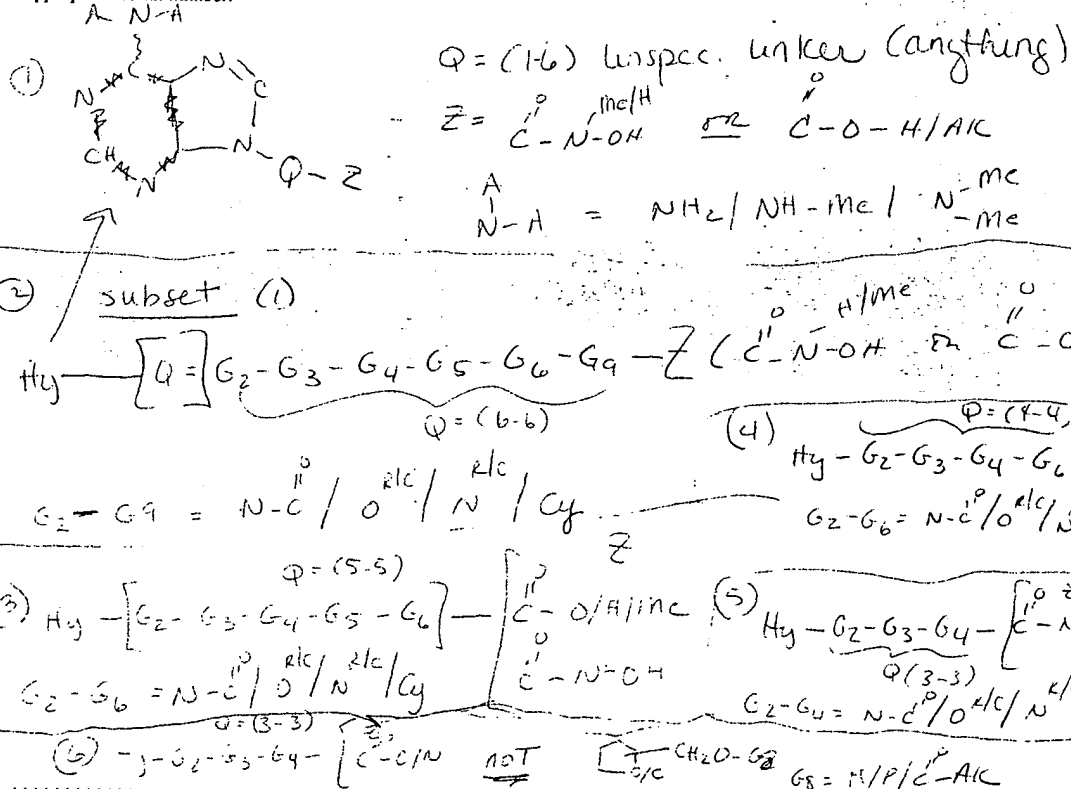 A N-A
① N C N C
CH N N-Q-Z
Q = (1-6) unspec. linker (anything)
Z = O C-N-OH Me/H or O C-O-H/AK
A N-A = NH2 / NH-Me / N-Me -Me
② subset (1)
Hy-[Q=]G2-G3-G4-G5-G6-G9-Z (O C-N-OH H/Me or O C-O
Q = (6-6)
G2-G9 = N-C O / O R/C / N R/C / Cy
(4) Q = (4-4)
Hy-G2-G3-G4-G6
G2-G6 = N-C O / O R/C / N
3) Q = (5-5) Z
Hy-[G2-G3-G4-G5-G6]-[C O -O/H/Me
C O -N-OH
G2-G6 = N-C O / O R/C / N R/C / Cy
(5) Hy-G2-G3-G4-[C O -N
Q (3-3)
G2-G4 = N-C O / O R/C / N R/
(6) Q = (3-3)
-G2-G3-G4-[C-O/N NOT O/C CH2O-G8
G8 = H/P/C O -AK